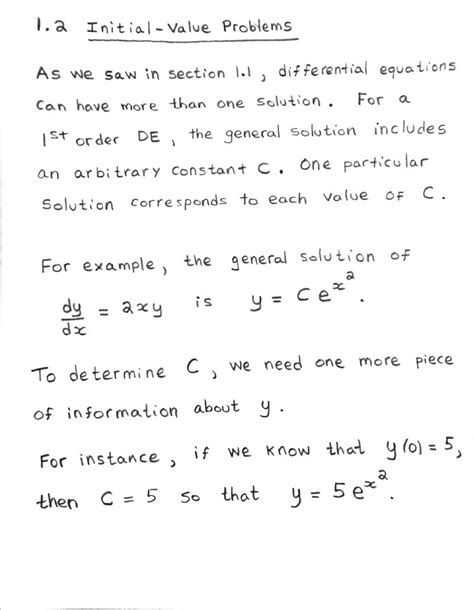 1.2 Initial-Value Problems
As we saw in section 1.1, differential equations
can have more than one solution. For a
1st order DE, the general solution includes
an arbitrary constant C. One particular
solution corresponds to each value of C.
For example, the general solution of
dy/dx = 2xy is y = Ce^x^2.
To determine C, we need one more piece
of information about y.
For instance, if we know that y(0) = 5,
then C = 5 so that y = 5e^x^2.